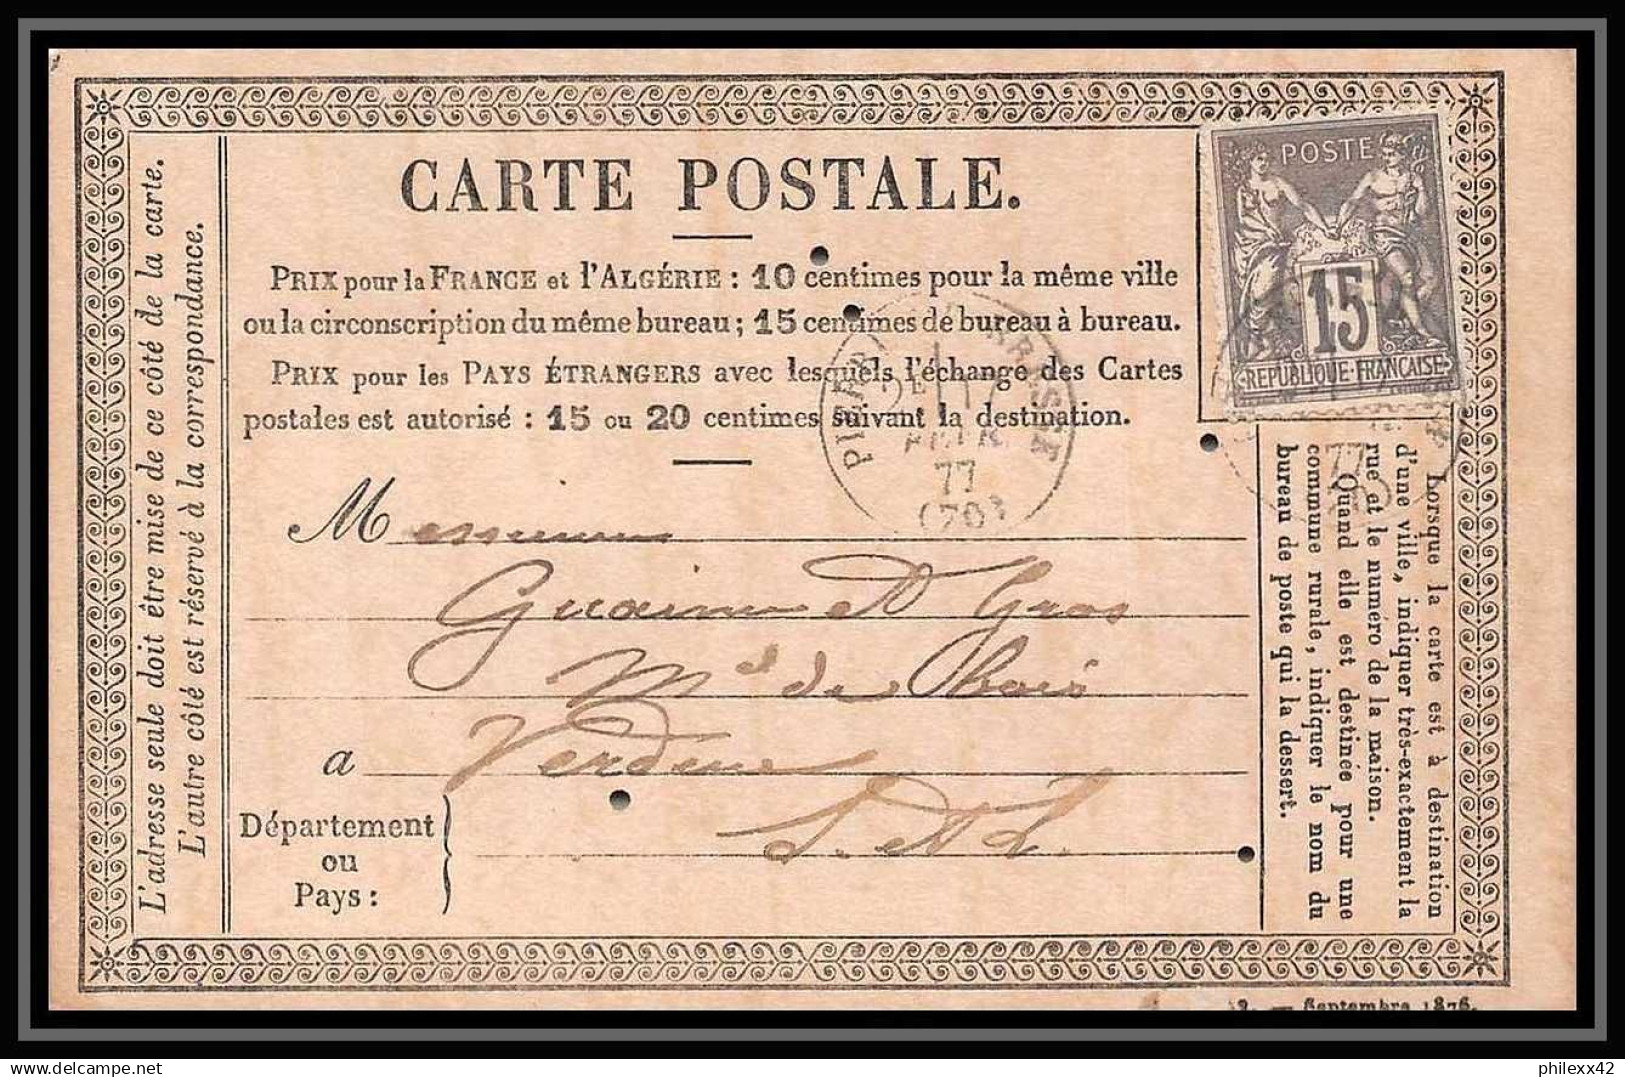 CARTE POSTALE.
PRIX pour la FRANCE et l'ALGÉRIE : 10 centimes pour la même ville
ou la circonscription du même bureau ; 15 centimes de bureau à bureau.
PRIX pour les PAYS ÉTRANGERS avec lesquels l'échange des Cartes
postales est autorisé : 15 ou 20 centimes suivant la destination.
POSTE
15
REPUBLIQUE FRANÇAISE
77
(70)
77
Messieurs
Gros
Md de bois
a Verdun
Département
ou
Pays :
S. et L.
L'adresse seule doit être mise de ce côté de la carte.
L'autre côté est réservé à la correspondance.
Lorsque la carte est à destination
d'une ville, indiquer très-exactement la
rue et le numéro de la maison.
Quand elle est destinée pour une
commune rurale, indiquer le nom du
bureau de poste qui la dessert.
Septembre 1876.
philexx42